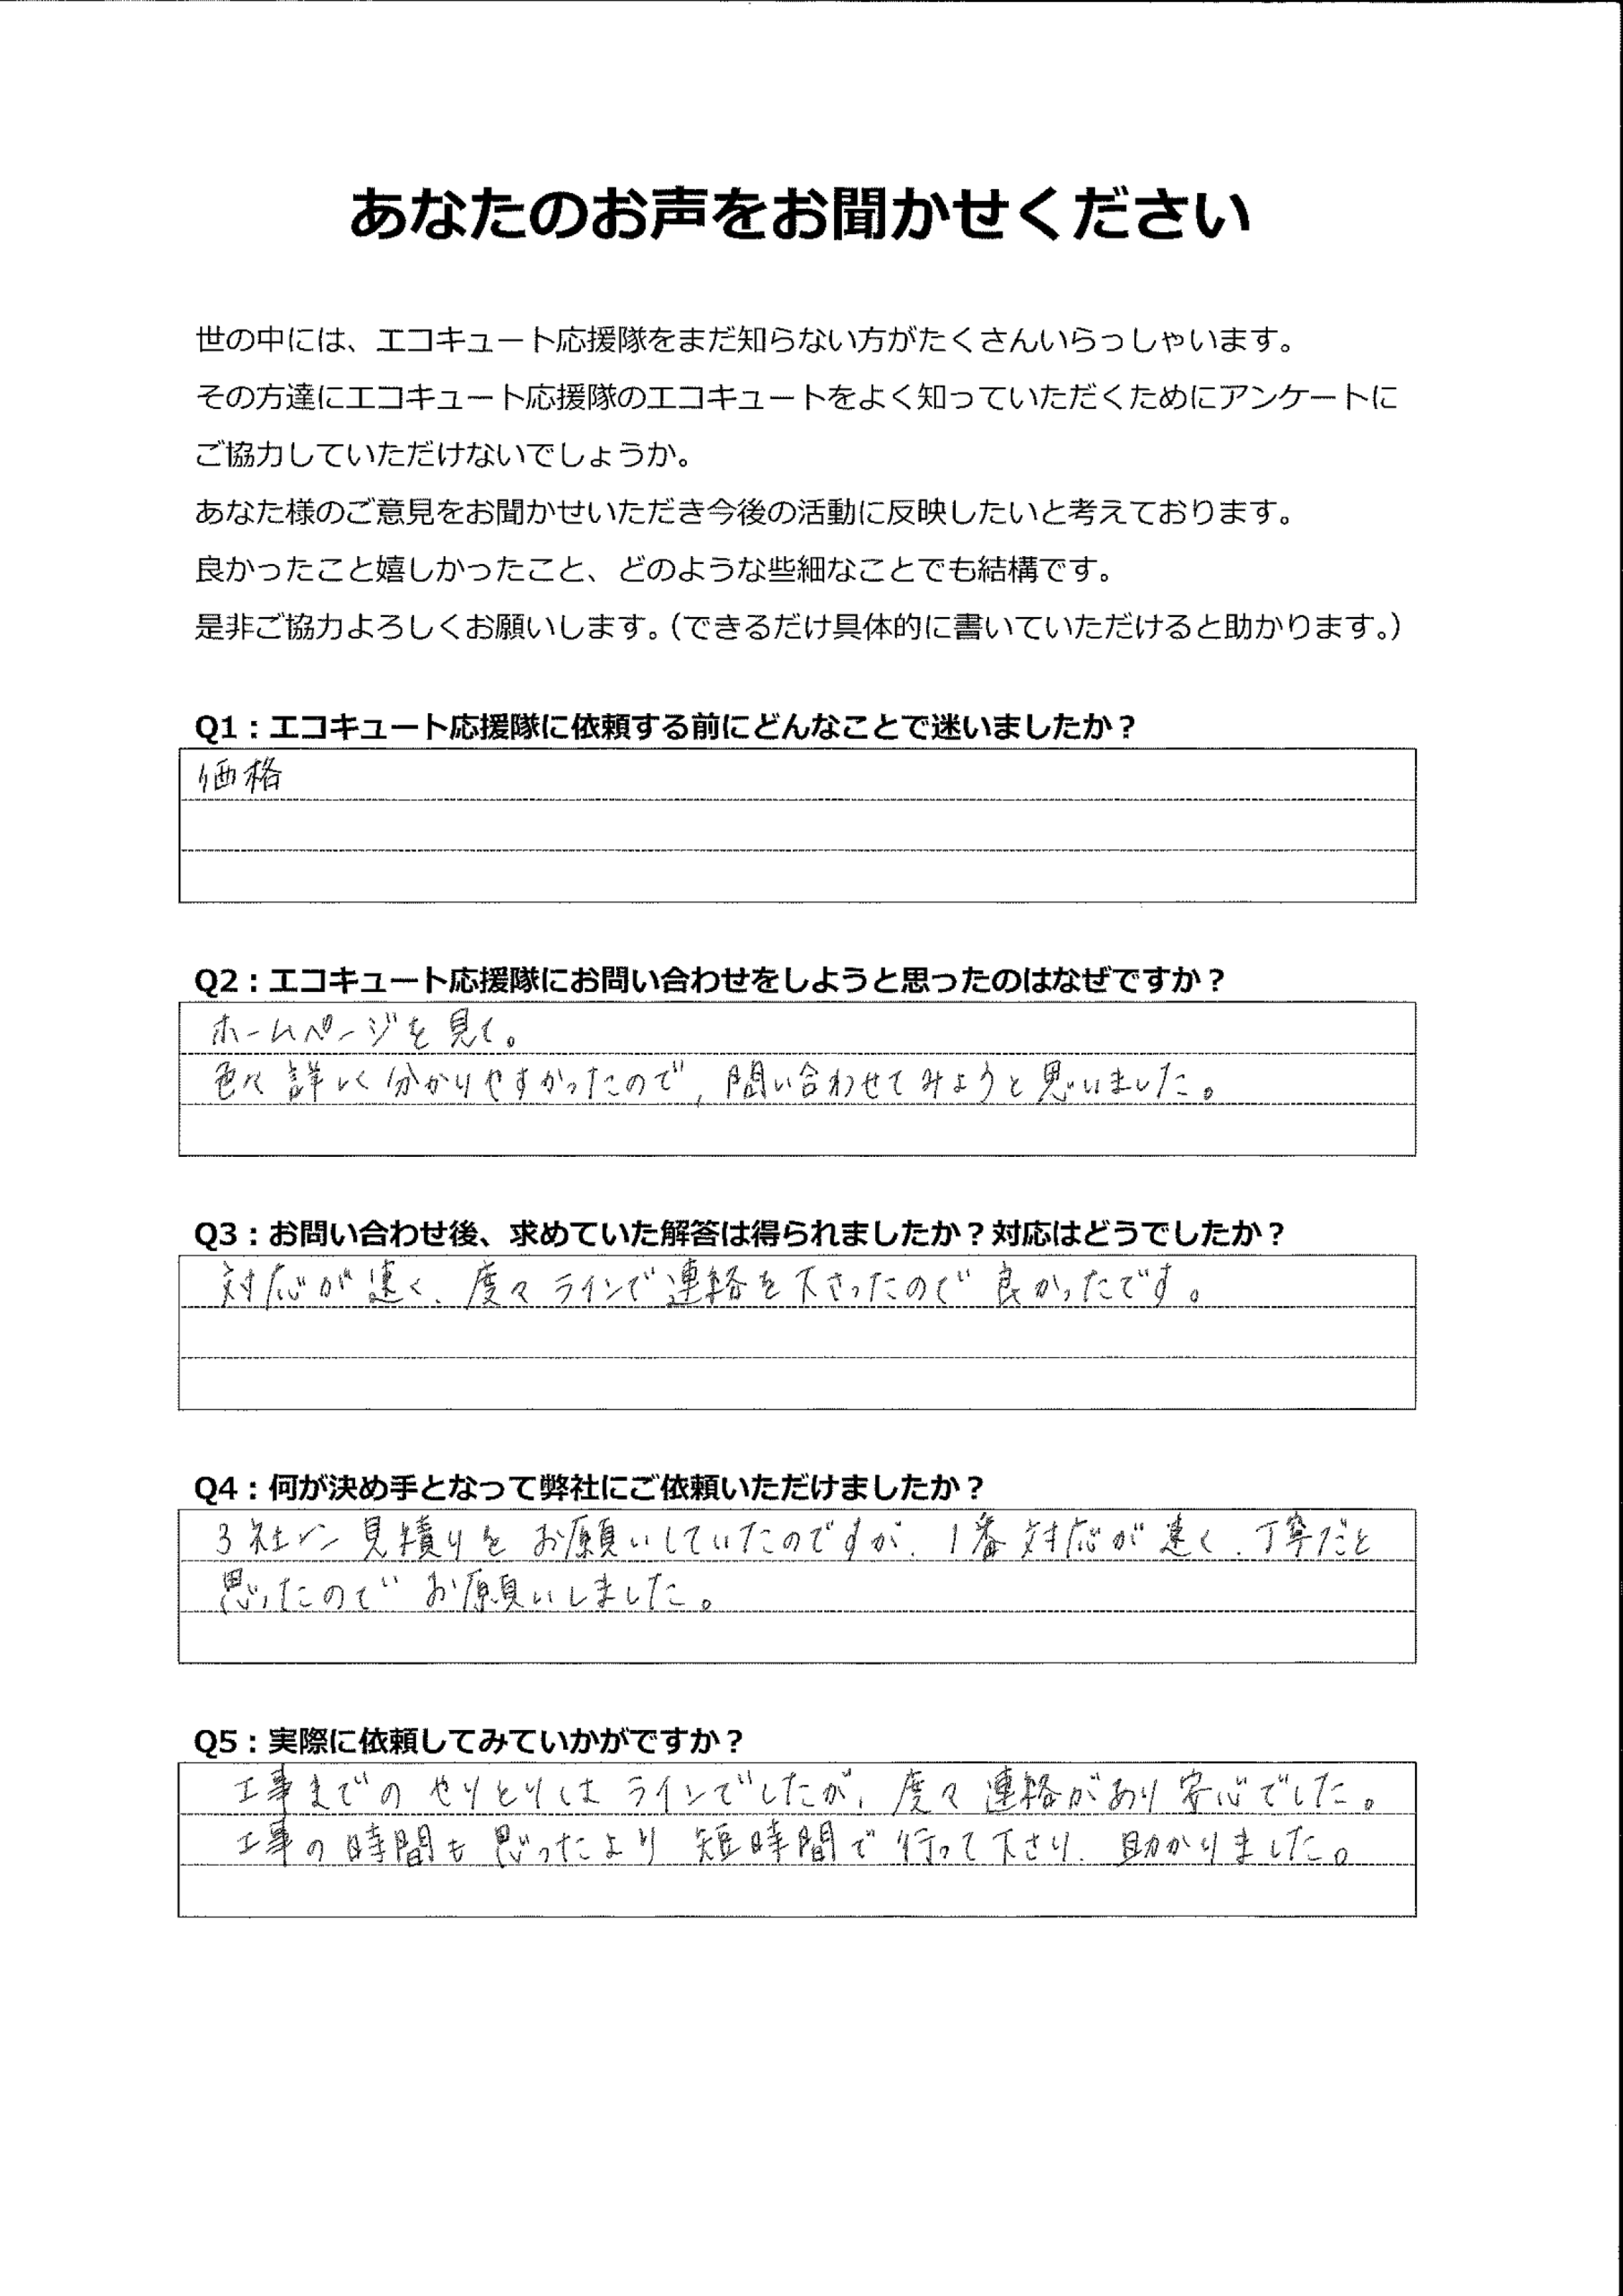 あなたのお声をお聞かせください
世の中には、エコキュート応援隊をまだ知らない方がたくさんいらっしゃいます。
その方達にエコキュート応援隊のエコキュートをよく知っていただくためにアンケートに
ご協力していただけないでしょうか。
あなた様のご意見をお聞かせいただき今後の活動に反映したいと考えております。
良かったこと嬉しかったこと、どのような些細なことでも結構です。
是非ご協力よろしくお願いします。（できるだけ具体的に書いていただけると助かります。）
Q1：エコキュート応援隊に依頼する前にどんなことで迷いましたか？
価格
Q2：エコキュート応援隊にお問い合わせをしようと思ったのはなぜですか？
ホームページを見て。
色々詳しく分かりやすかったので、問い合わせてみようと思いました。
Q3：お問い合わせ後、求めていた解答は得られましたか？対応はどうでしたか？
対応が速く、度々ラインで連絡を下さったので良かったです。
Q4：何が決め手となって弊社にご依頼いただけましたか？
3社に見積りをお願いしていたのですが、1番対応が速く、丁寧だと
思ったのでお願いしました。
Q5：実際に依頼してみていかがですか？
工事までのやりとりはラインでしたが、度々連絡があり安心でした。
工事の時間も思ったより短時間で行って下さり、助かりました。